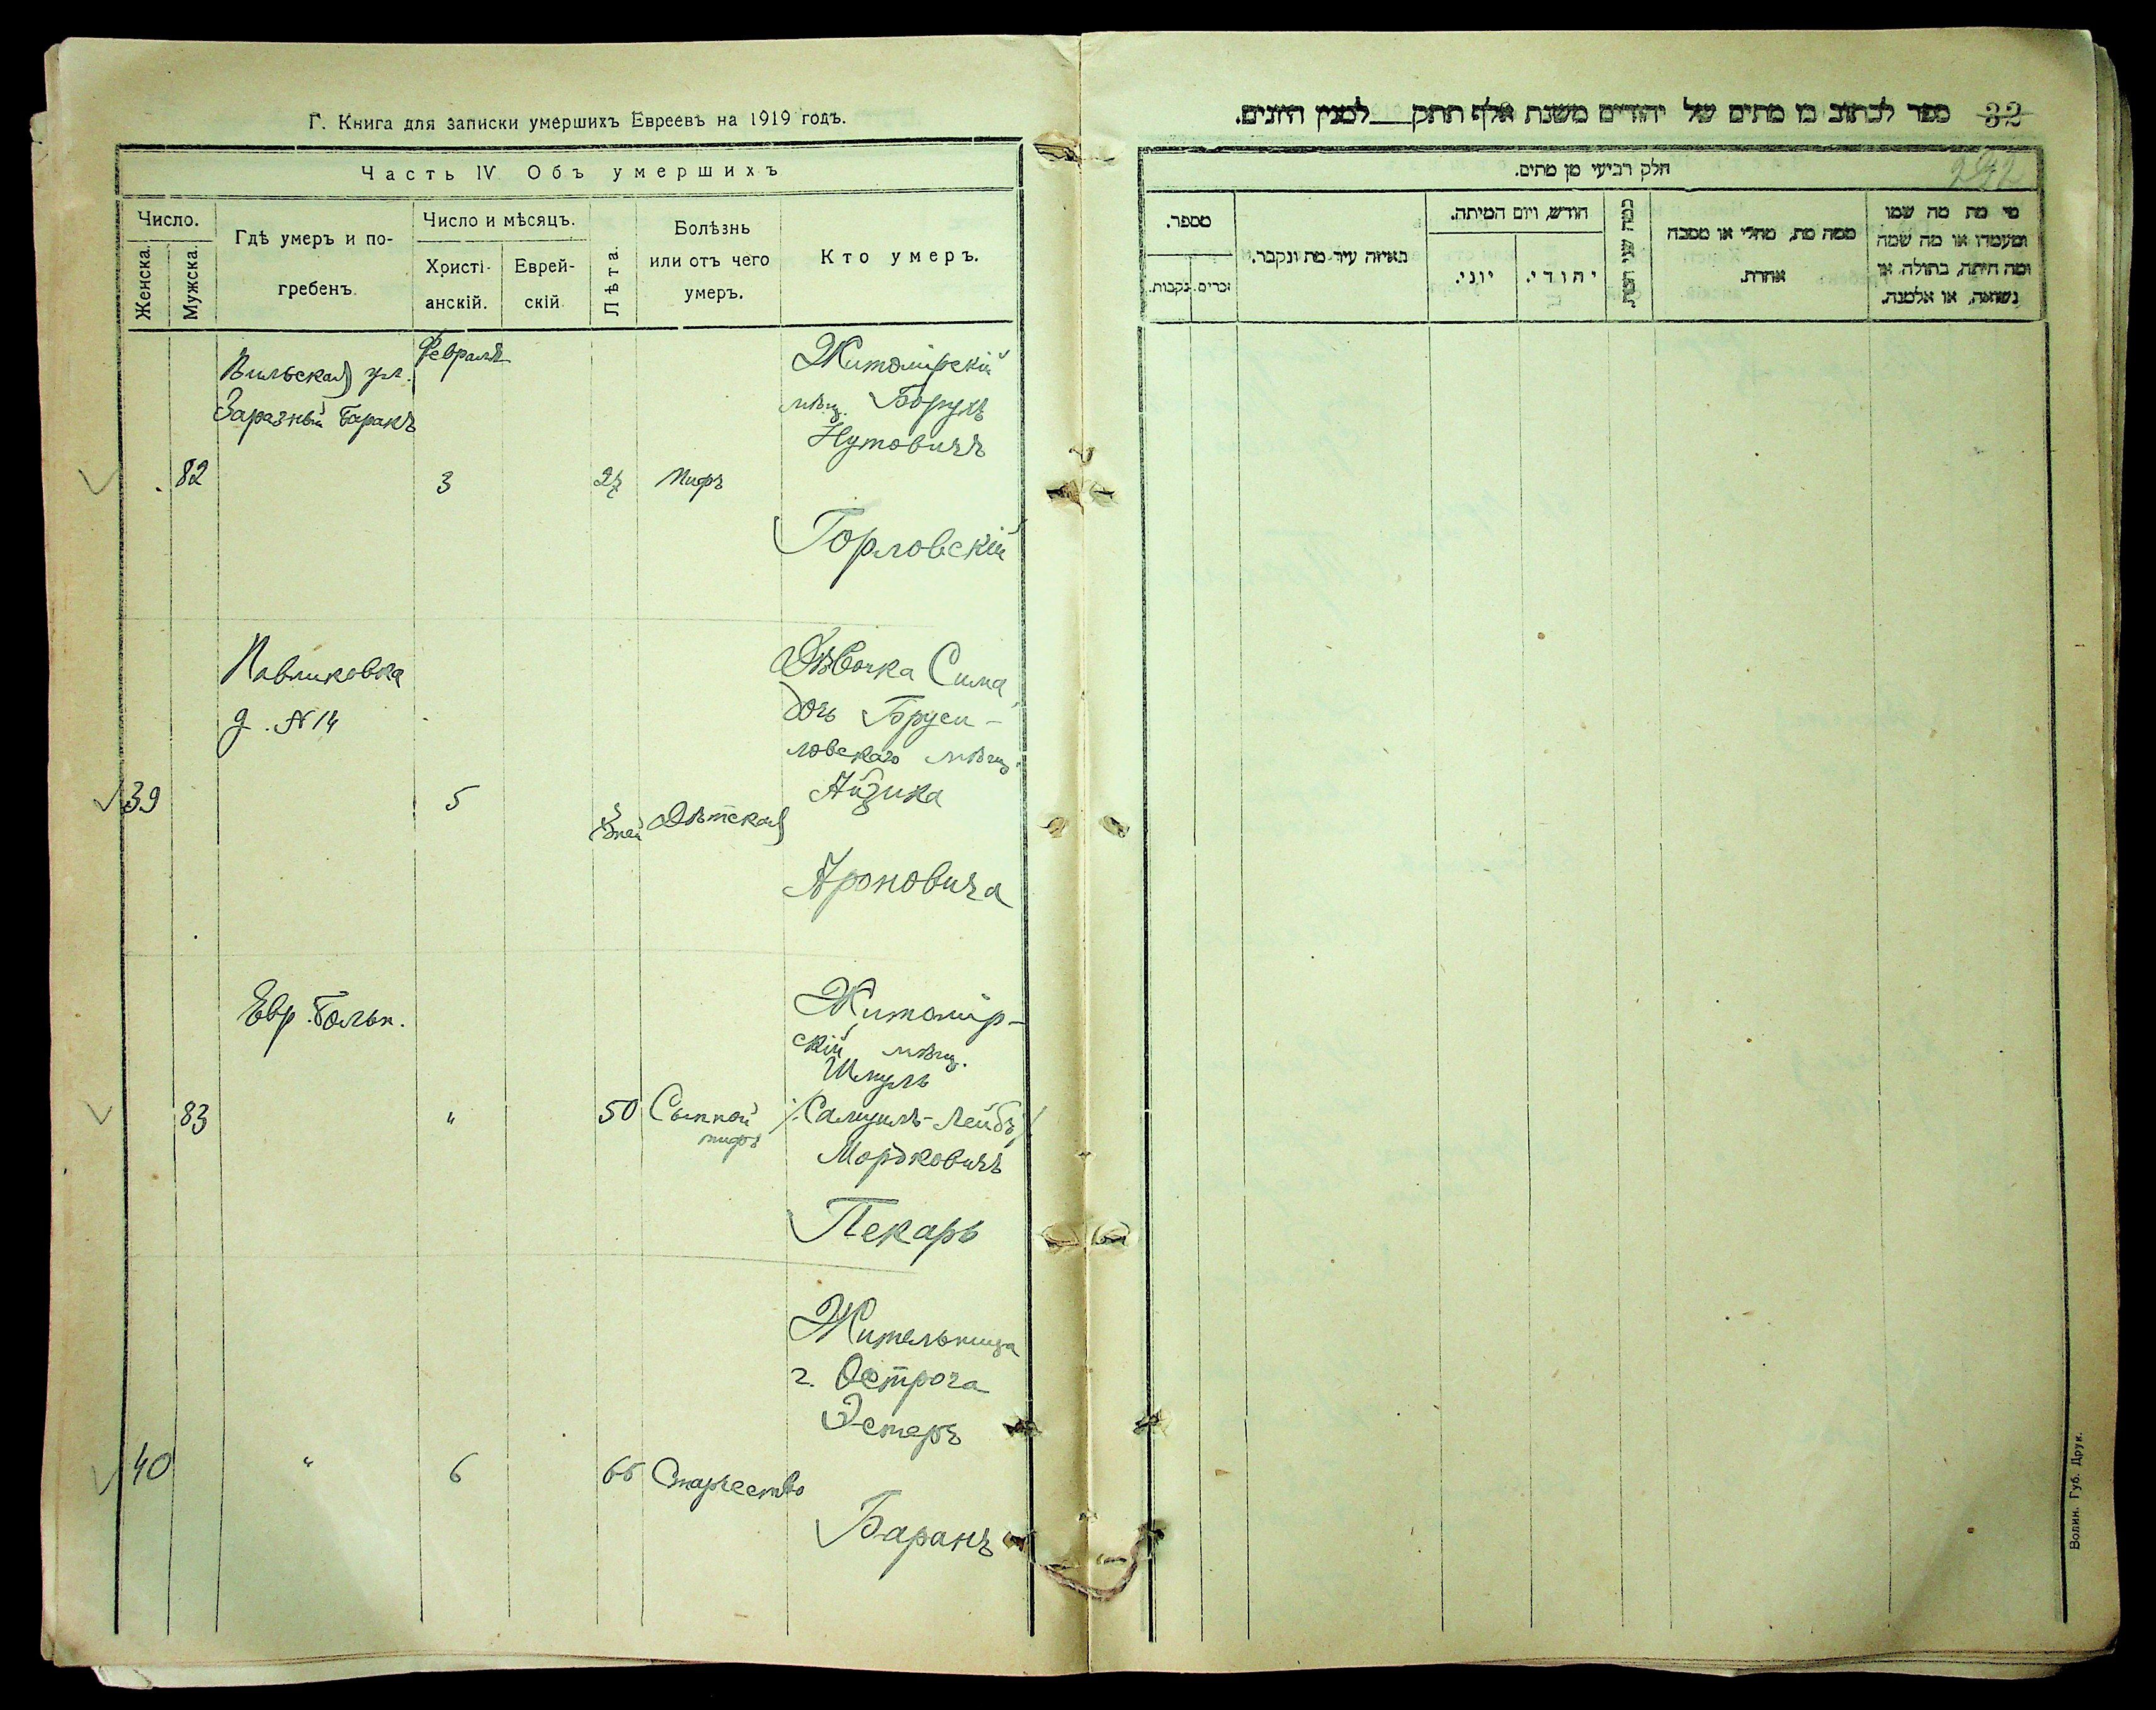 Г. Книга для записки умершихъ Евреевъ на 1919 годъ.
Часть IV Объ умершихъ
Число.
Женска.
Мужска.
Гдѣ умеръ и по-
гребенъ
Число и мѣсяцъ.
Христі-
анскій.
Еврей-
скій
Лѣта.
Болѣзнь
или отъ чего
умеръ.
Кто умеръ.
Февраля
Вильская ул.
Заразный баракъ
82
3
27
Тифъ
Житомірскій
мѣщ. Борухъ
Нутовичъ
Горловскій
Павликовка
д. №14
39
5
дней
Дѣтская
Дѣвочка Сима
дочь Бруси-
ловскаго мѣщ.
Айзика
Ароновича
Евр. больн.
83
"
50
Сыпной
тифъ
Житомір-
скій мѣщ.
Шмуль
/Самуилъ-Лейбъ/
Мордковичъ
Пекарь
40
"
6
66
Старчество
Жительница
г. Острога
Эстеръ
Баранъ
ספר לכתוב בו מתים של יהודים משנת אלף תתק___ למנין היונים.
32
292
חלק רביעי מן מתים.
מספר.
נקבות.
זכרים.
באיזה עיר מת ונקבר.
חודש, ויום המיתה.
יוני.
יהודי.
כמה שני המת.
ממה מת, מחלי או מסבה
אחרת.
מי מת מה שמו
ומעמדו או מה שמה
ומה היתה, בתולה או
נשואה, או אלמנה.
Волин. Губ. Друк.